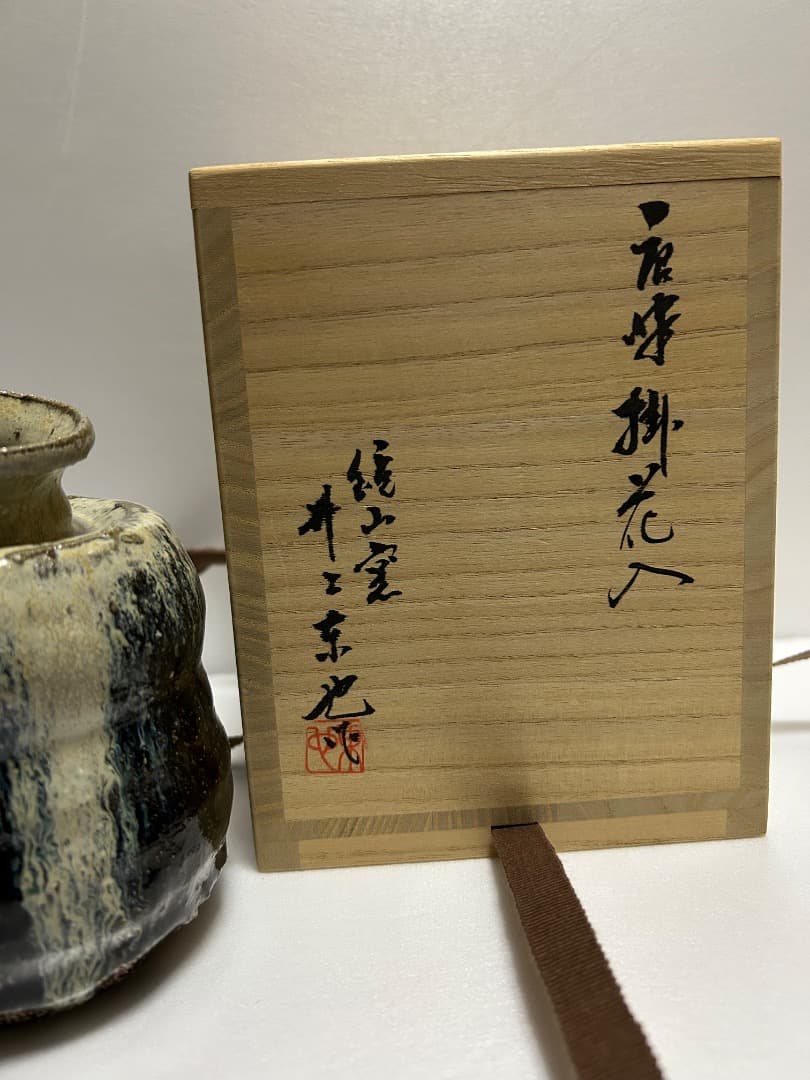 唐津 掛花入
鏡山窯
井上東也作